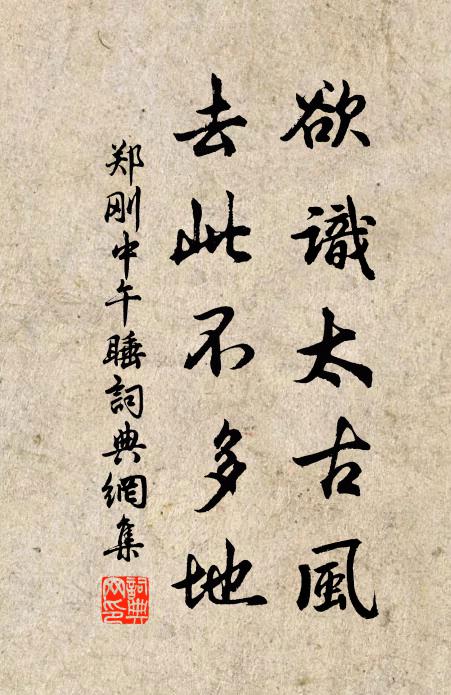 欲識太古風
去此不多地
郑刚中午睡詞典網集
詞典网印